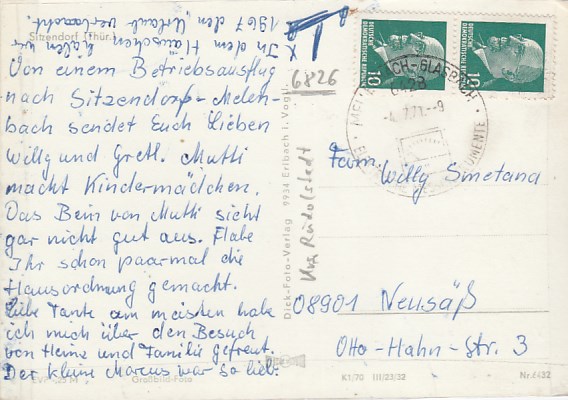 Sitzendorf (Thür.)
x In dem Häuschen haben wir
1967 den Urlaub verbracht.
Von einem Betriebsausflug
nach Sitzendorf-Mellen-
bach sendet Euch Lieben
Willy und Gretl. Mutti
macht Kindermädchen.
Das Bein von Mutti sieht
gar nicht gut aus. Habe
Ihr schon paarmal die
Hausordnung gemacht.
Liebe Tante am meisten habe
ich mich über den Besuch
von Heinz und Familie gefreut.
Der kleine Marcus war so lieb.
Großbild-Foto
Dick-Foto-Verlag 9934 Erlbach i. Vogtl.
6826
Krs. Rudolstadt
DEUTSCHE
DEMOKRATISCHE REPUBLIK
10
DEUTSCHE
DEMOKRATISCHE REPUBLIK
10
MELLENBACH-GLASBACH
7.71.-9
Fam. Willy Smetana
08901 Neusäß
Otto-Hahn-Str. 3
K1/70 III/23/32
Nr. 6432